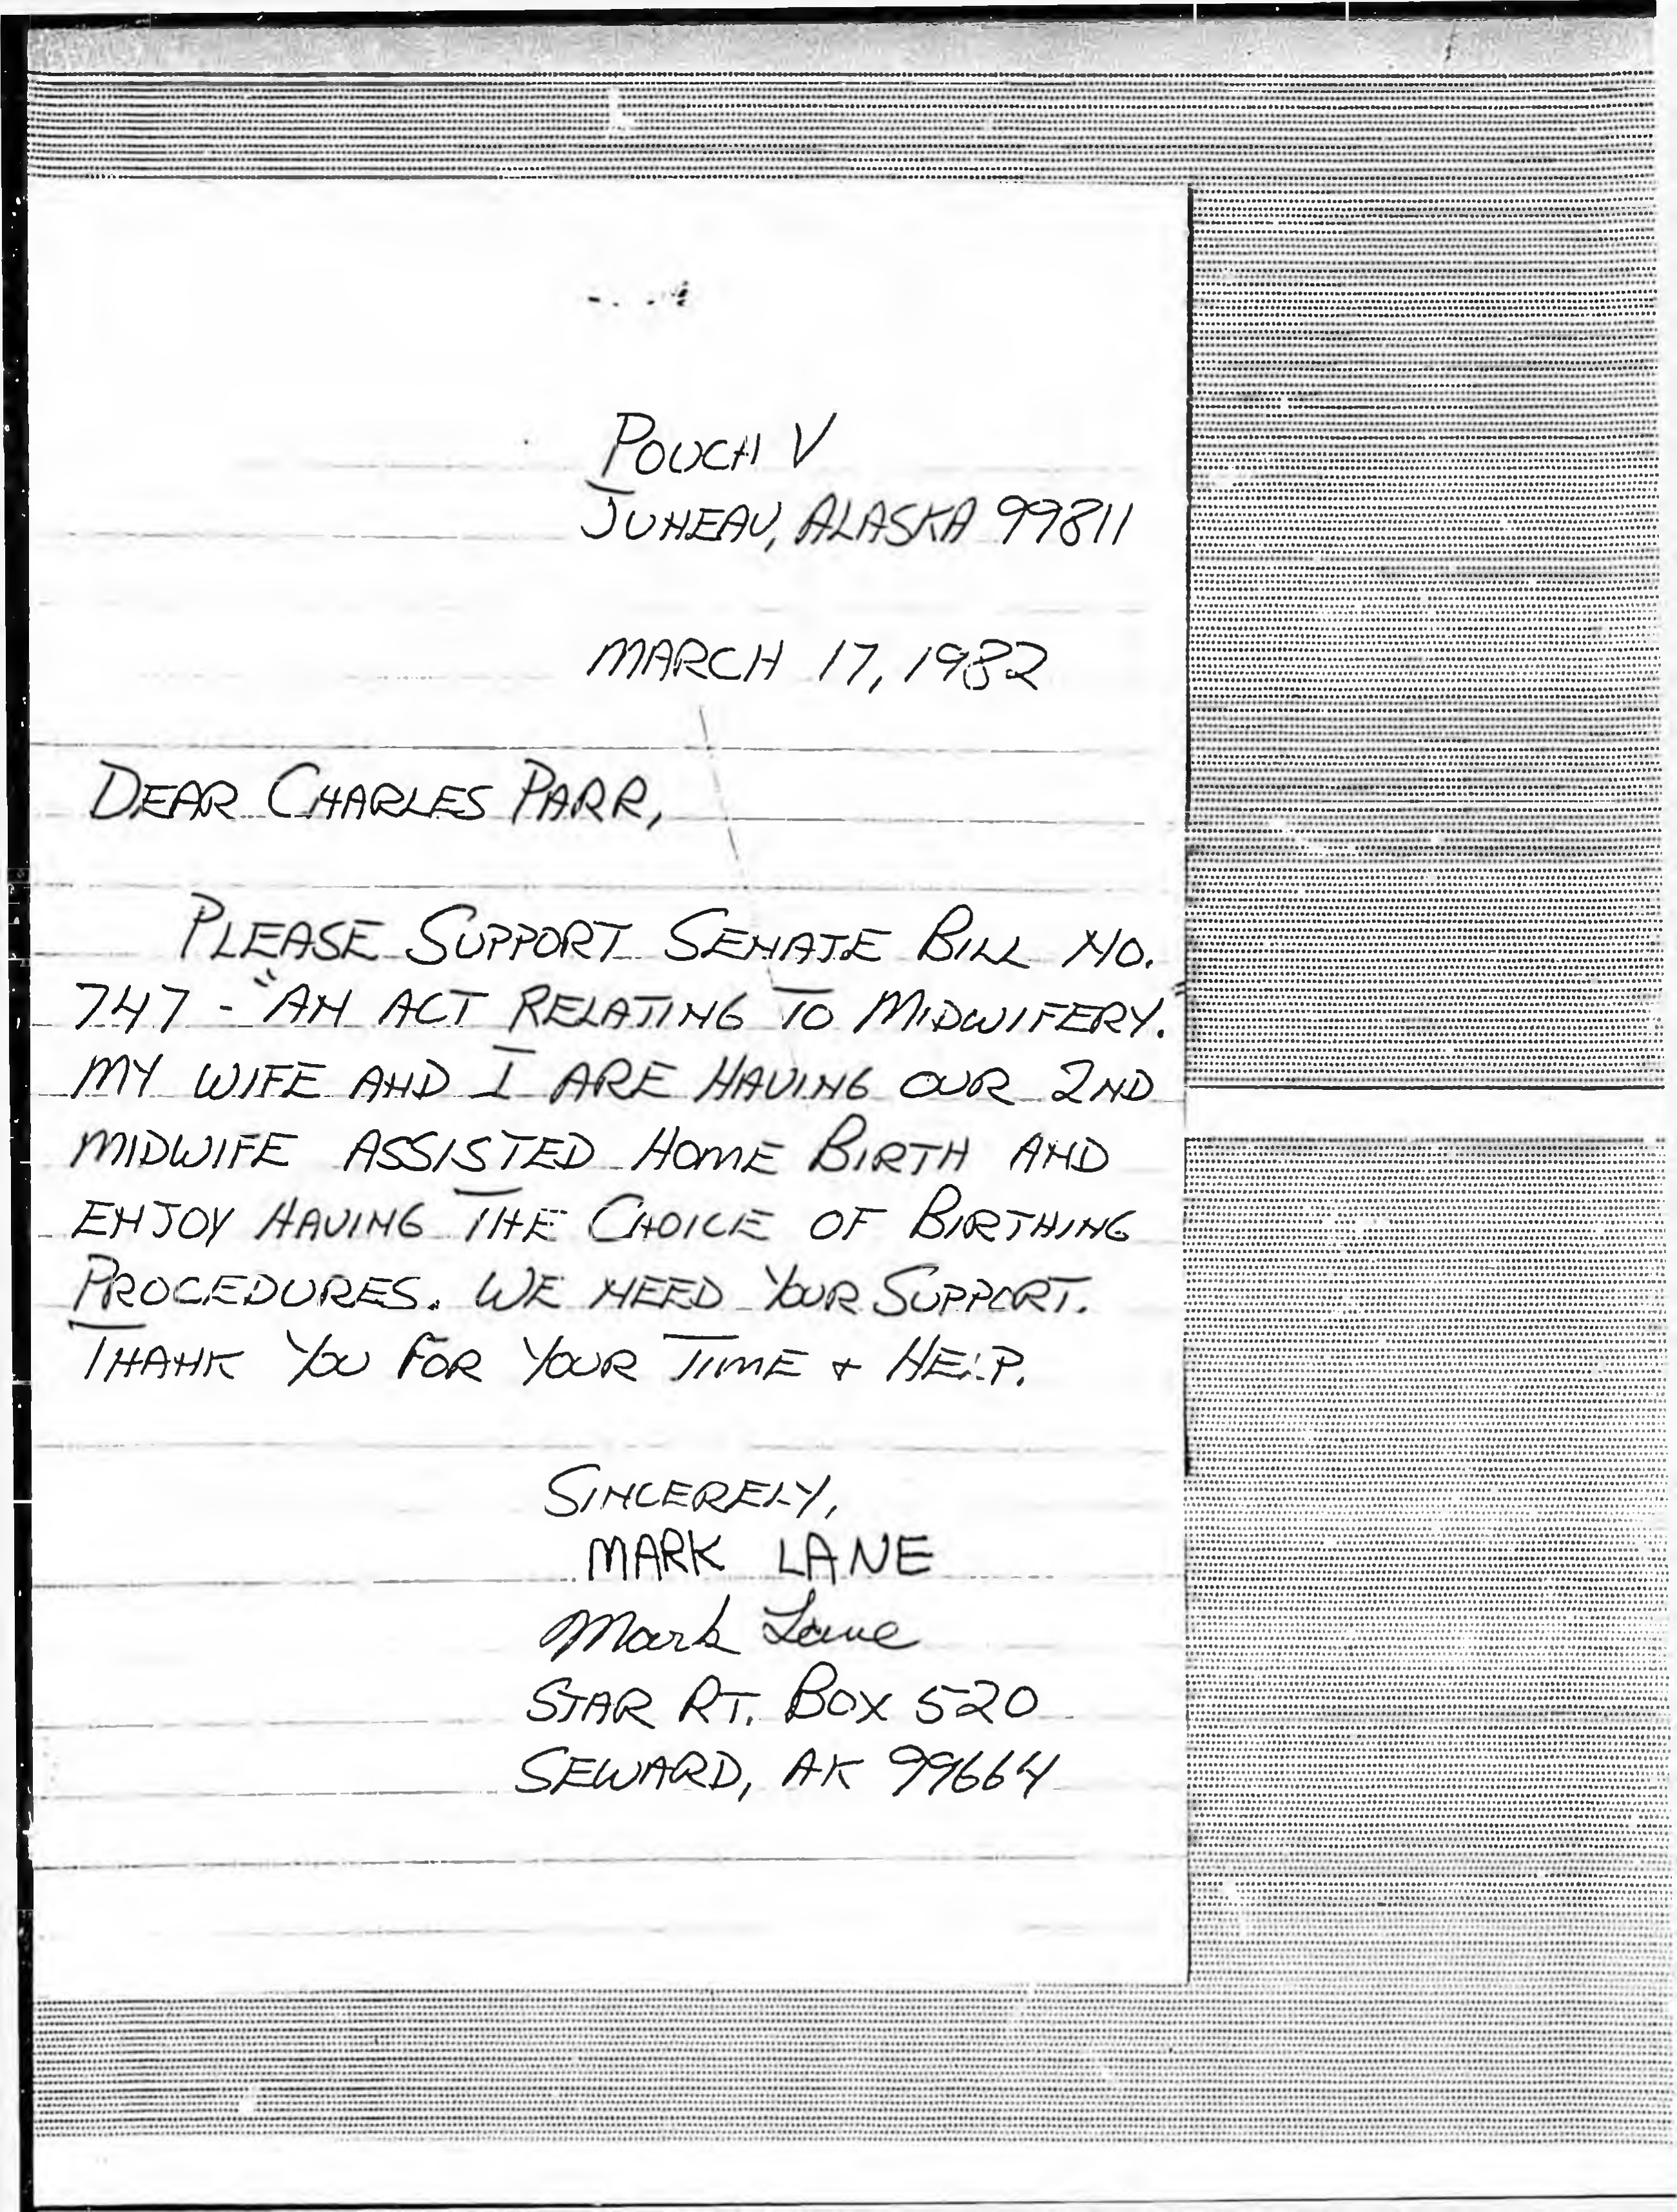 POUCH V
JUNEAU, ALASKA 99811
MARCH 17, 1982
DEAR CHARLES PARR,
PLEASE SUPPORT SENATE BILL NO.
747 - "AN ACT RELATING TO MIDWIFERY."
MY WIFE AND I ARE HAVING OUR 2ND
MIDWIFE ASSISTED HOME BIRTH AND
ENJOY HAVING THE CHOICE OF BIRTHING
PROCEDURES. WE NEED YOUR SUPPORT.
THANK YOU FOR YOUR TIME + HELP.
SINCERELY,
MARK LANE
Mark Lane
STAR RT. BOX 520
SEWARD, AK 99664